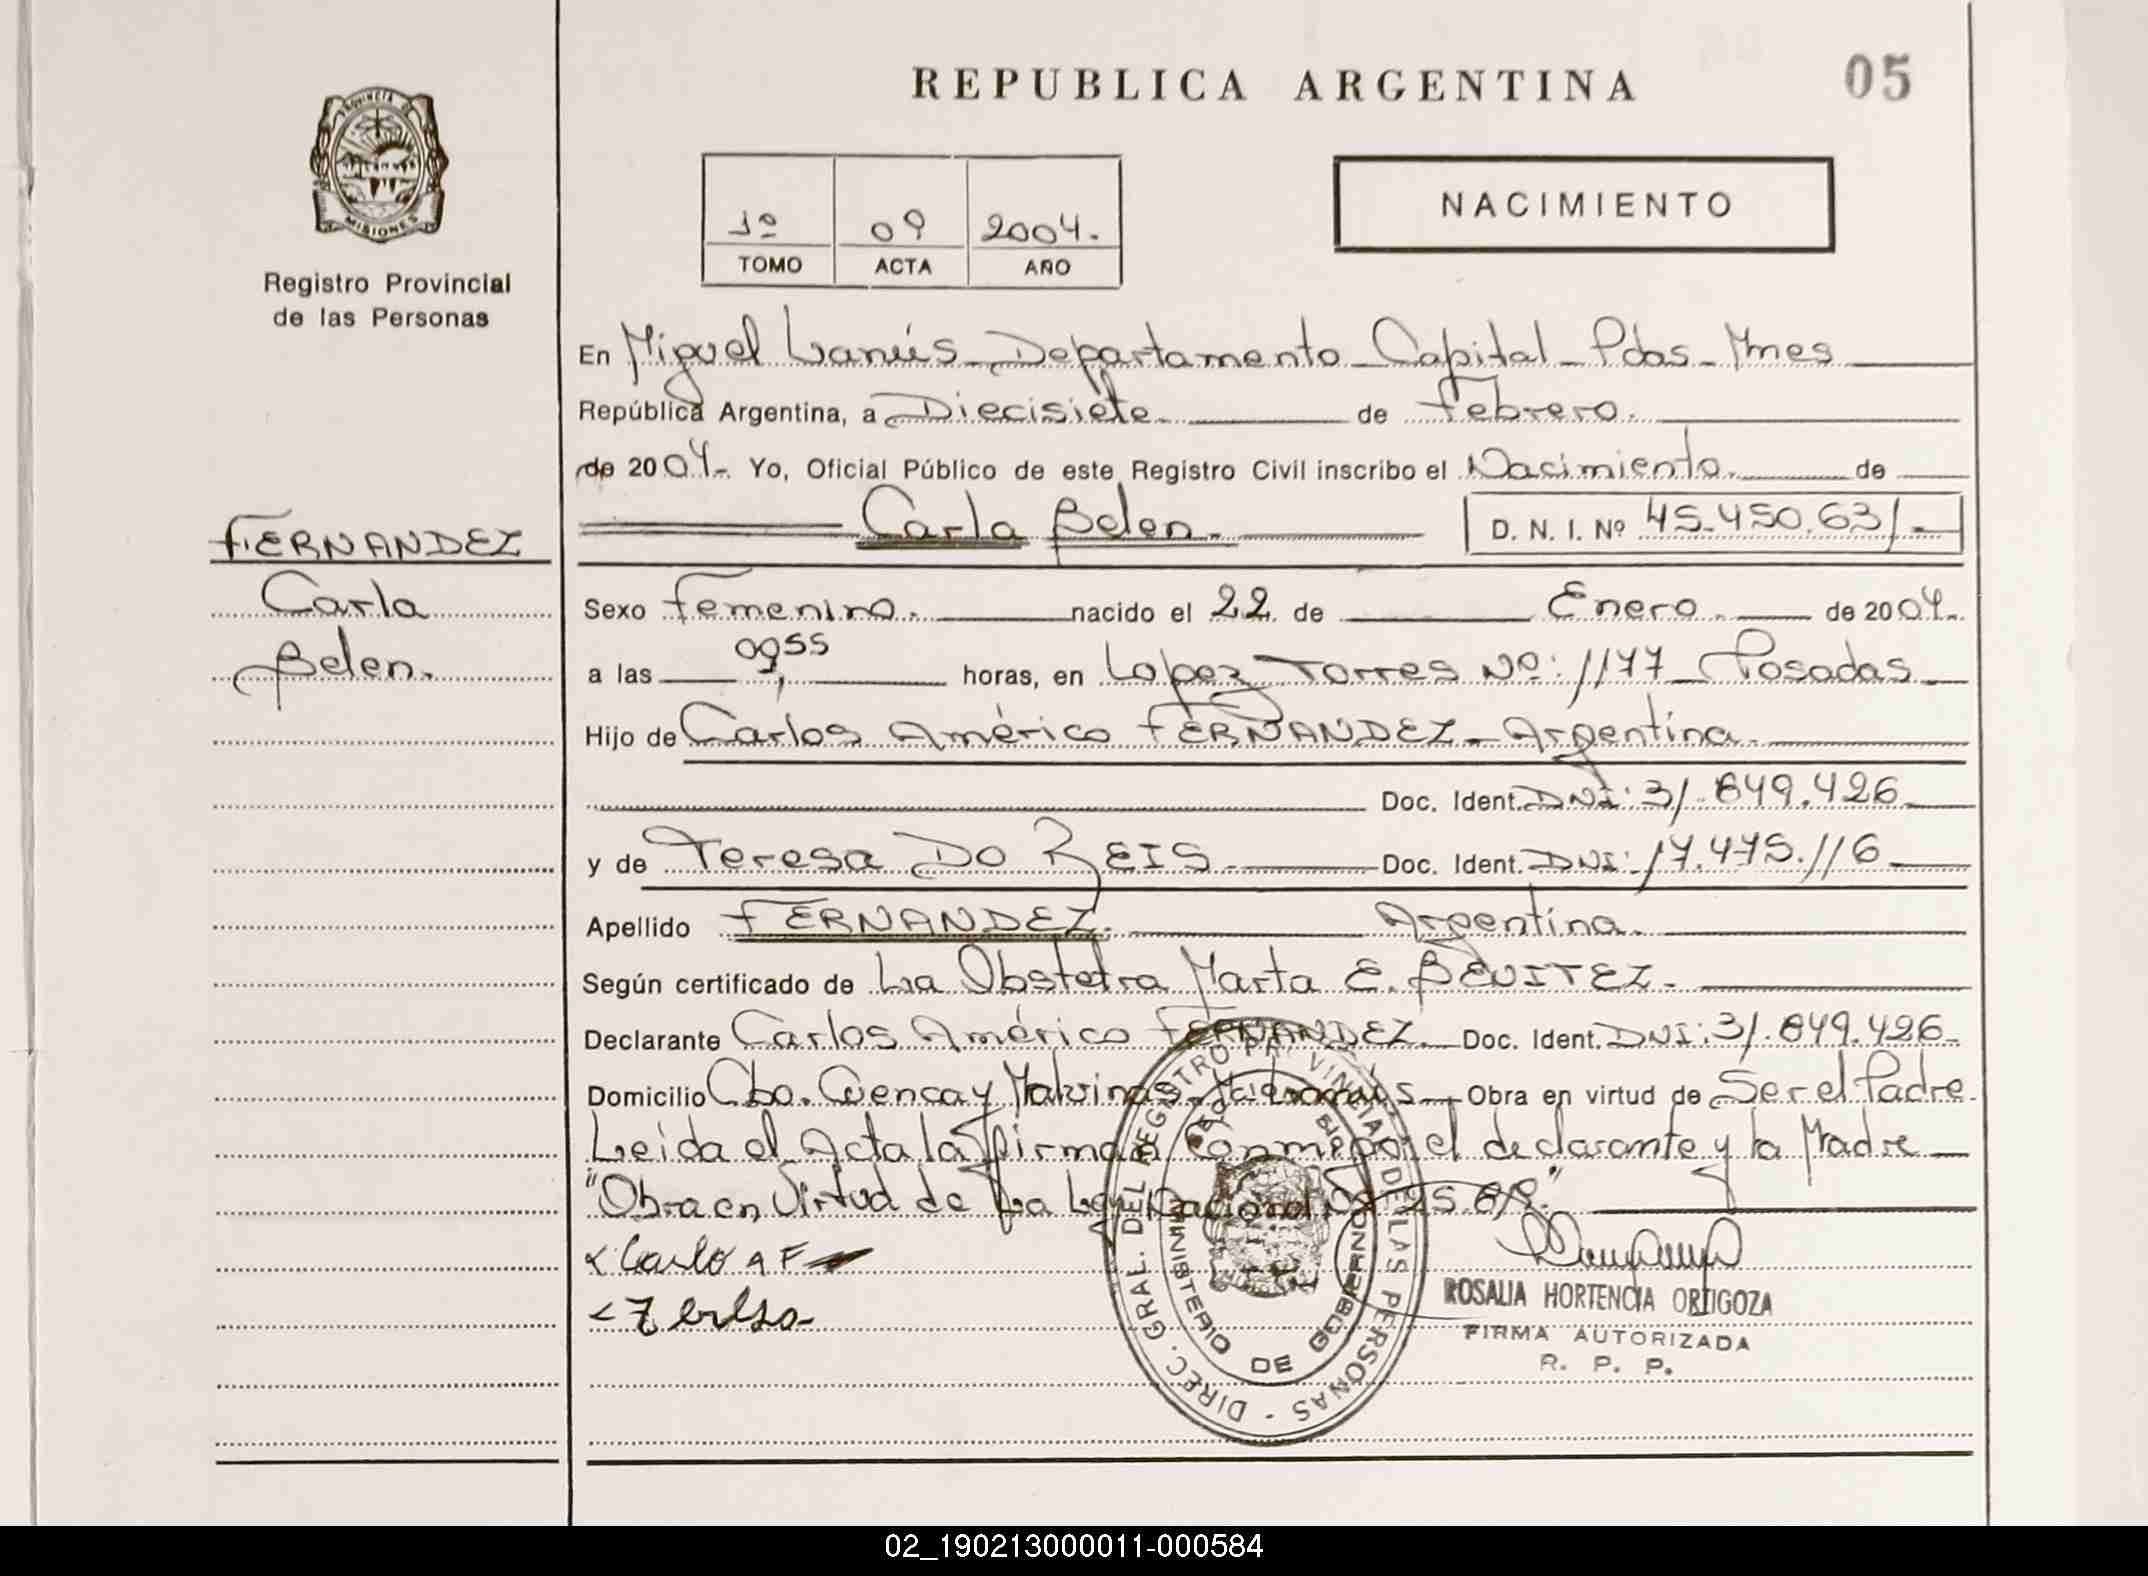 REPUBLICA ARGENTINA
05
PROVINCIA DE
MISIONES
Registro Provincial
de las Personas
1º 09 2004.
TOMO ACTA AÑO
NACIMIENTO
En Miguel Lanús - Departamento - Capital - Pdas - Mnes
República Argentina, a Diecisiete de Febrero.
de 2004. Yo, Oficial Público de este Registro Civil inscribo el Nacimiento. de
Carla Belen. D. N. I. Nº 45.450.631.-
FERNANDEZ
Carla
Belen.
Sexo Femenino. nacido el 22 de Enero. de 2004.
a las 09,55 horas, en Lopez Torres Nº: 1177 - Posadas
Hijo de Carlos Américo FERNANDEZ - Argentina.
Doc. Ident. DNI: 31.849.426
y de Teresa DO REIS. Doc. Ident. DNI: 17.475.116
Apellido FERNANDEZ. Argentina.
Según certificado de La Obstetra Marta E. BENITEZ.
Declarante Carlos Américo FERNANDEZ. Doc. Ident. DNI: 31.849.426
Domicilio Cbo. Cuenca y Malvinas - Obra en virtud de Ser el Padre.
Leida el Acta la firman Conmigo el declarante y la Madre
"Obra en Virtud de La Ley Nacional Nº 25.819."
Carlo A F
DIREC. GRAL. DEL REGISTRO PROVINCIAL DE LAS PERSONAS
MINISTERIO DE GOBIERNO
ROSALIA HORTENCIA ORTIGOZA
FIRMA AUTORIZADA
R. P. P.
02_190213000011-000584